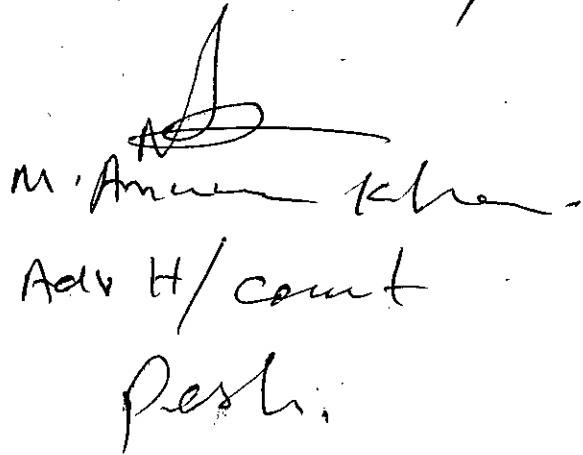 M. Khan.
Adv H/ court
Pesh.